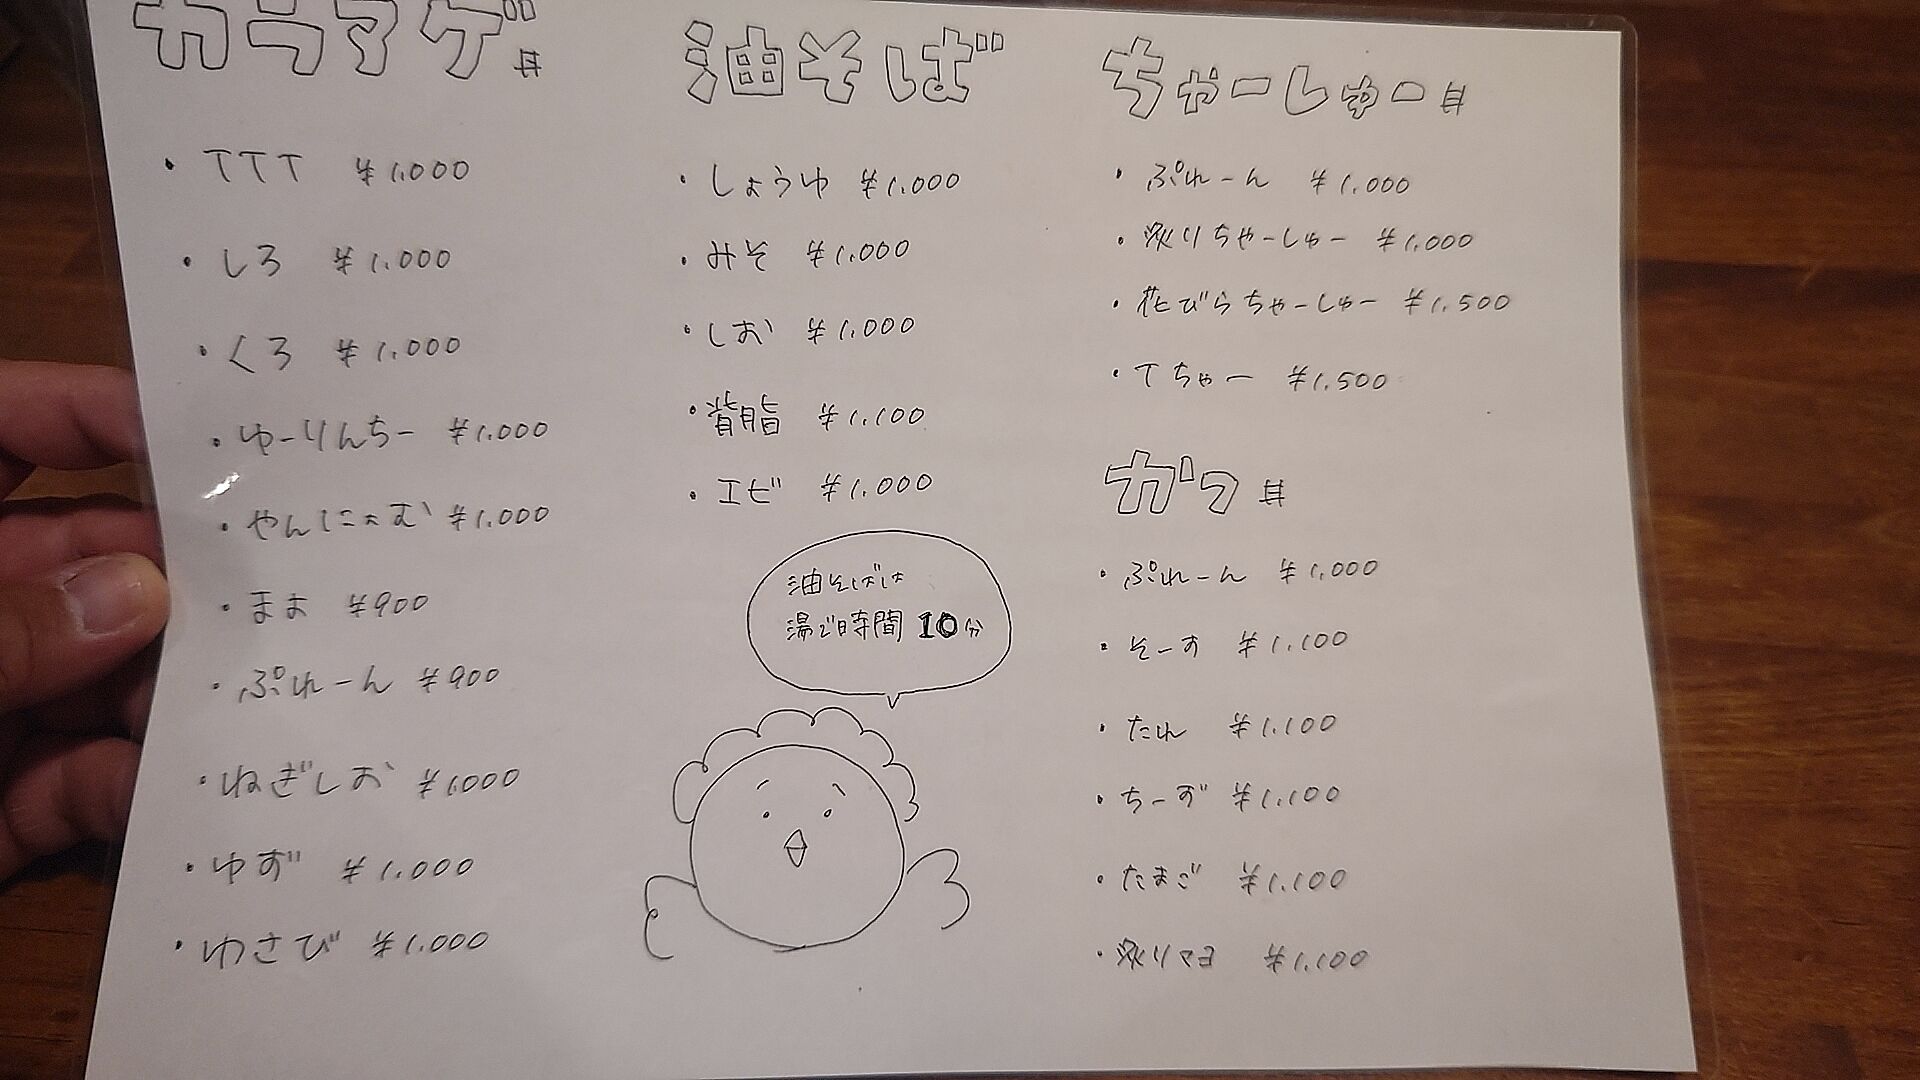 カラアゲ丼
・TTT ¥1.000
・しろ ¥1.000
・くろ ¥1.000
・ゆーりんちー ¥1.000
・やんにょむ ¥1.000
・まよ ¥900
・ぷれーん ¥900
・ねぎしお ¥1.000
・ゆず ¥1.000
・わさび ¥1.000
油そば
・しょうゆ ¥1.000
・みそ ¥1.000
・しお ¥1.000
・背脂 ¥1.100
・エビ ¥1.000
油そばは
湯で時間 10分
ちゃーしゅー丼
・ぷれーん ¥1.000
・炙りちゃーしゅー ¥1.000
・花びらちゃーしゅー ¥1.500
・Tちゃー ¥1.500
カツ丼
・ぷれーん ¥1.000
・そーす ¥1.100
・たれ ¥1.100
・ちーず ¥1.100
・たまご ¥1.100
・炙りマヨ ¥1.100